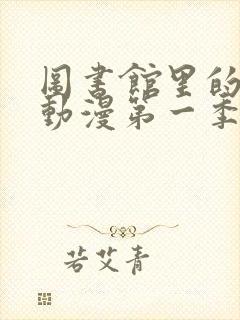 圖書館里的
動漫第一季
若艾青